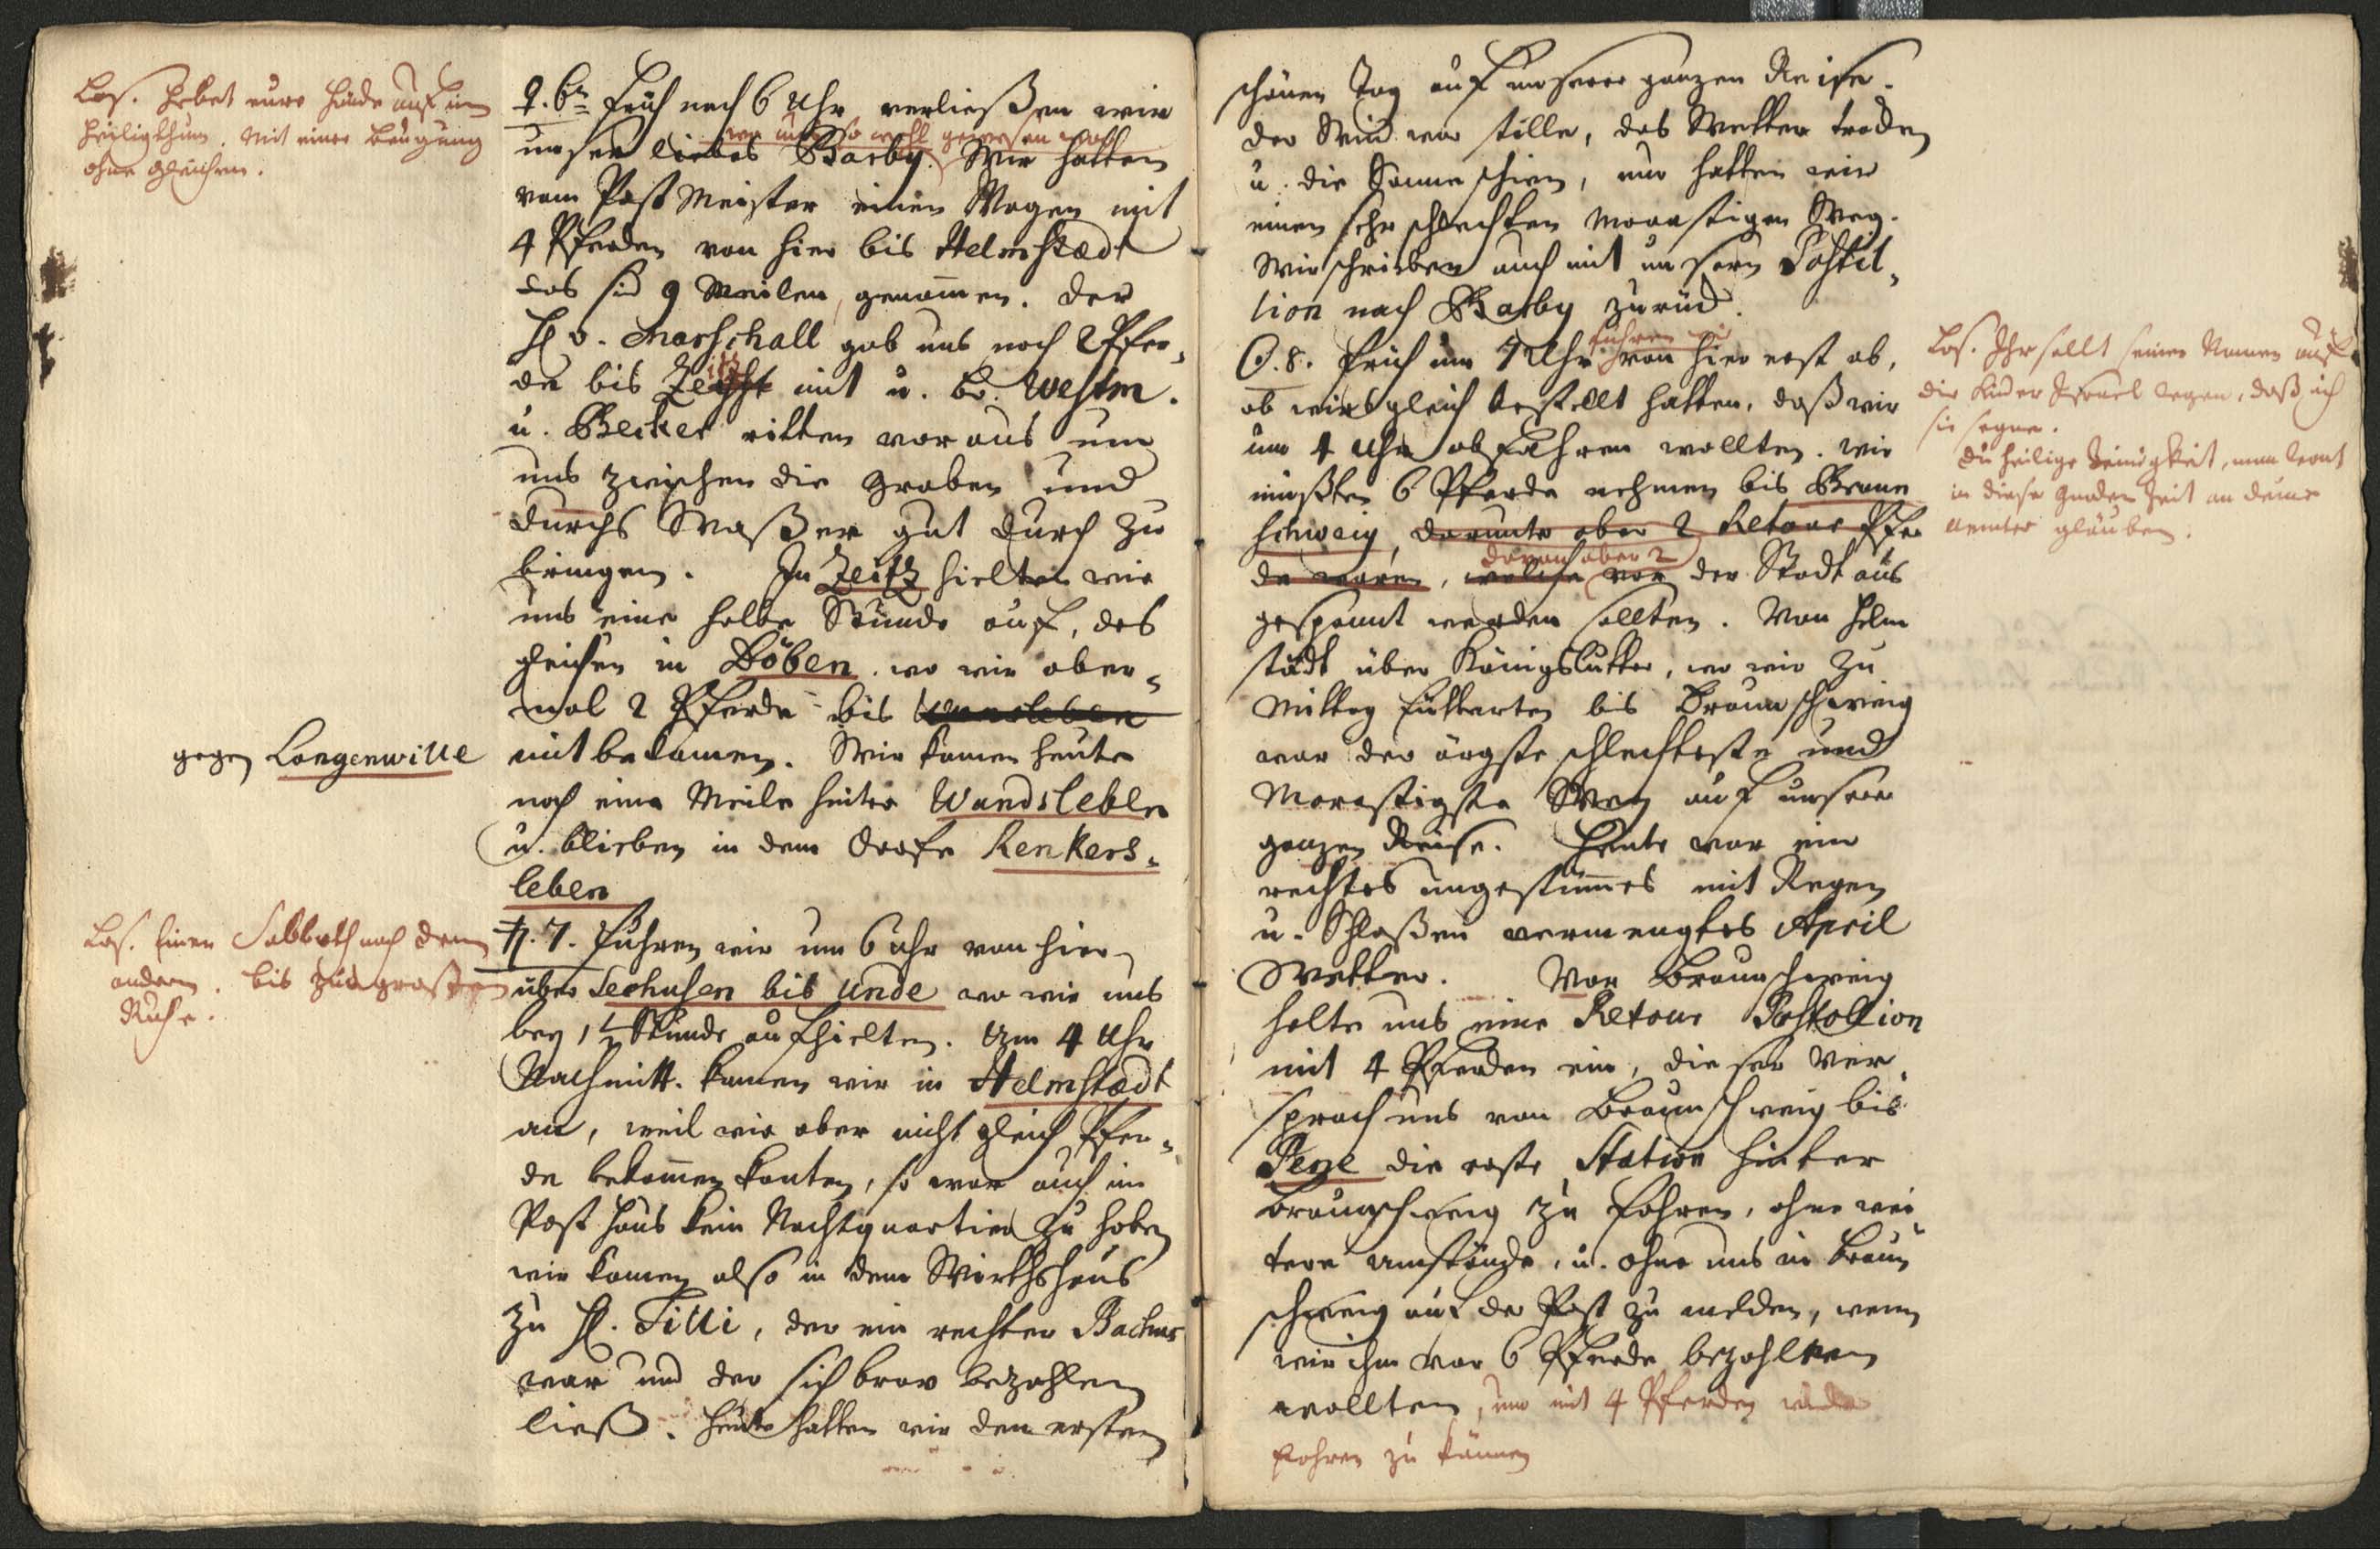 Los. Hebet eure Hände auf im
Heiligthum. Mit einer Beugung
ohne gleichen.
♀. 6ten früh nach 6 Uhr verließen wir
wo uns so wohl gewesen war
unser liebes Barby. Wir hatten
vom Post Meister einen Wagen mit
4 Pferden von hier bis Helmstædt
das sind 9 Meilen, genommen. Der
H. v. Marschall gab uns noch 2 Pfer-
de bis mit u. Br. Westm.
u. Becker ritten voraus um
uns zwischen die Graben und
durchs Waßer gut durch zu
bringen. In Zeitz hielten wir
uns eine halbe Stunde auf, des
gleichen in Böben. wo wir aber-
mal 2 Pferde bis
gegen Langenwille
mitbekamen. Wir kamen heute
noch eine Meile hinter Wandsleben
u. blieben in dem Dorfe Renkers-
leben
Los. Einen Sabbath nach dem
andern. bis zur großen
Ruhe.
♄. 7. fuhren wir um 6 Uhr von hier
über Seehusen bis Unde wo wir uns
bey 1½ Stunde aufhielten. Um 4 Uhr
Nachmitt. kamen wir in Helmstædt
an, weil wir aber nicht gleich Pfer-
de bekommen konten, so war auch im
Post Haus kein Nachtquartier zu haben
wir kamen also in dem Wirthshaus
zu H. Tilli, der ein rechter Bachus
war und der sich brav bezahlen
ließ. Heute hatten wir den ersten
schönen Tag auf unserer ganzen Reise.
der Wind war stille, das Wetter troden
u. die Sonne schien, nur hatten wir
einen sehr schlechten morastigen Weg.
Wir schrieben auch mit unserm Postil-
lion nach Barby zurück.
fuhren wir
☉. 8. früh um 7 Uhr von hier erst ab,
ob wirs gleich bestellt hatten, daß wir
um 4 Uhr abfahren wollten. wir
mußten 6 Pferde nehmen bis Braun
schweig, darunter aber 2 Retour Pfer
davon aber 2
de waren, welche vor der Stadt aus
gespannt werden sollten. Von Helm
städt über Königslutter, wo wir zu
Mittag futterten bis Braunschweig
war der ärgste schlechteste und
Morastigste Weg auf unserer
ganzen Reise. Heute war ein
rechtes ungestümmes mit Regen
u. Schloßen vermengtes April
Wetter. Vor Braunschweig
holte uns eine Retour Postollion
mit 4 Pferden ein, dieser ver-
sprach uns von Braunschweig bis
Peine die erste Station hinter
Braunschweig zu fahren, ohne wei
tere Umstände, u. ohne uns in Braun
schweig auf der Post zu melden, wenn
wir ihm vor 6 Pferde bezahlen
wollten, um mit 4 Pferden
fahren zu können
Los. Ihr sollt seinen Namen auf
die Kinder Israel legen, daß ich
sie segne.
Du heilige Dreinigkeit, man lernt
in dieser Gnaden Zeit an deine
Aemter gläuben.